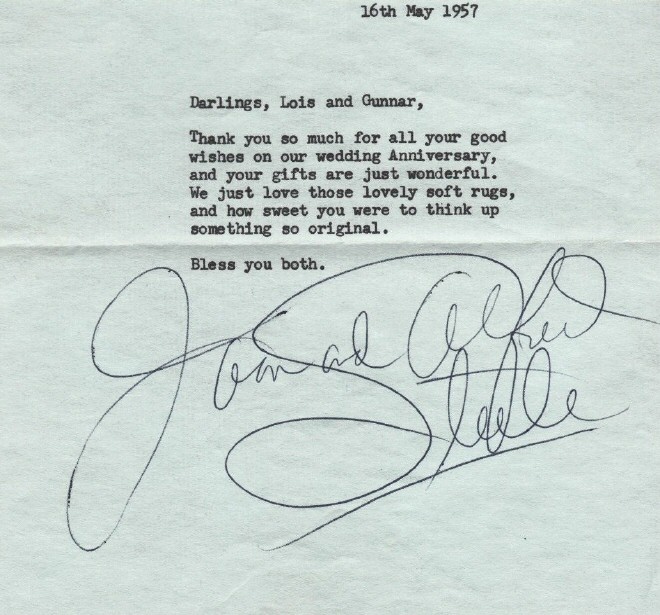 16th May 1957
Darlings, Lois and Gunnar,
Thank you so much for all your good
wishes on our wedding Anniversary,
and your gifts are just wonderful.
We just love those lovely soft rugs,
and how sweet you were to think up
something so original.
Bless you both.
Joan and Alfred
Steele